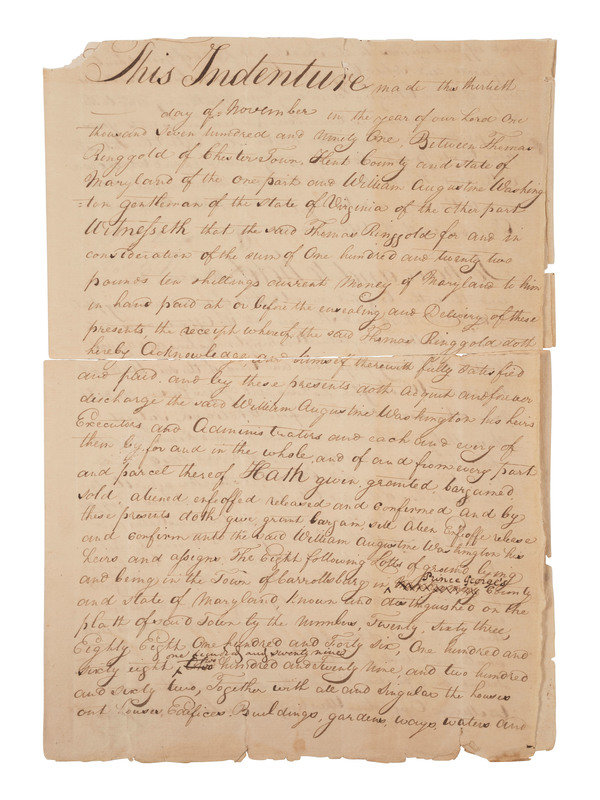 This Indenture made this thirtieth
day of November in the year of our Lord One
thousand Seven hundred and Ninety One, Between Thomas
Ringgold of Chester Town, Kent County and state of
Maryland of the one part and William Augustine Washing
=ton Gentleman of the State of Virginia of the other part
Witnesseth that the said Thomas Ringgold for and in
consideration of the sum of One hundred and twenty two
pounds ten shillings current Money of Maryland to him
in hand paid at or before the ensealing and Delivery of these
presents the receipt whereof the said Thomas Ringgold doth
hereby Acknowledge, and himself therewith fully satisfied
and paid and by these presents doth acquit and forever
discharge the said William Augustine Washington his heirs
Executors and Administrators and each and every of
them by for and in the whole and of and from every part
and parcel thereof Hath given, granted bargained
sold, aliened enfeoffed released and confirmed and by
these presents doth give grant bargain, sell Alien Enfeoffe release
and confirm unto the said William Augustine Washington his
heirs and assigns, The Eight following Lotts of ground lying
and being in the Town of Carrollsburg in Prince George's County
and State of Maryland, known and distinguished on the
platt of said Town by the Numbers, Twenty, sixty three,
Eighty Eight One hundred and Forty six, One hundred and
sixty eight, one hundred and seventy nine two hundred and Twenty Nine, and two hundred
and sixty two, Together with all and Singular the houses
out houses, Edifices Buildings, gardens, ways, waters and